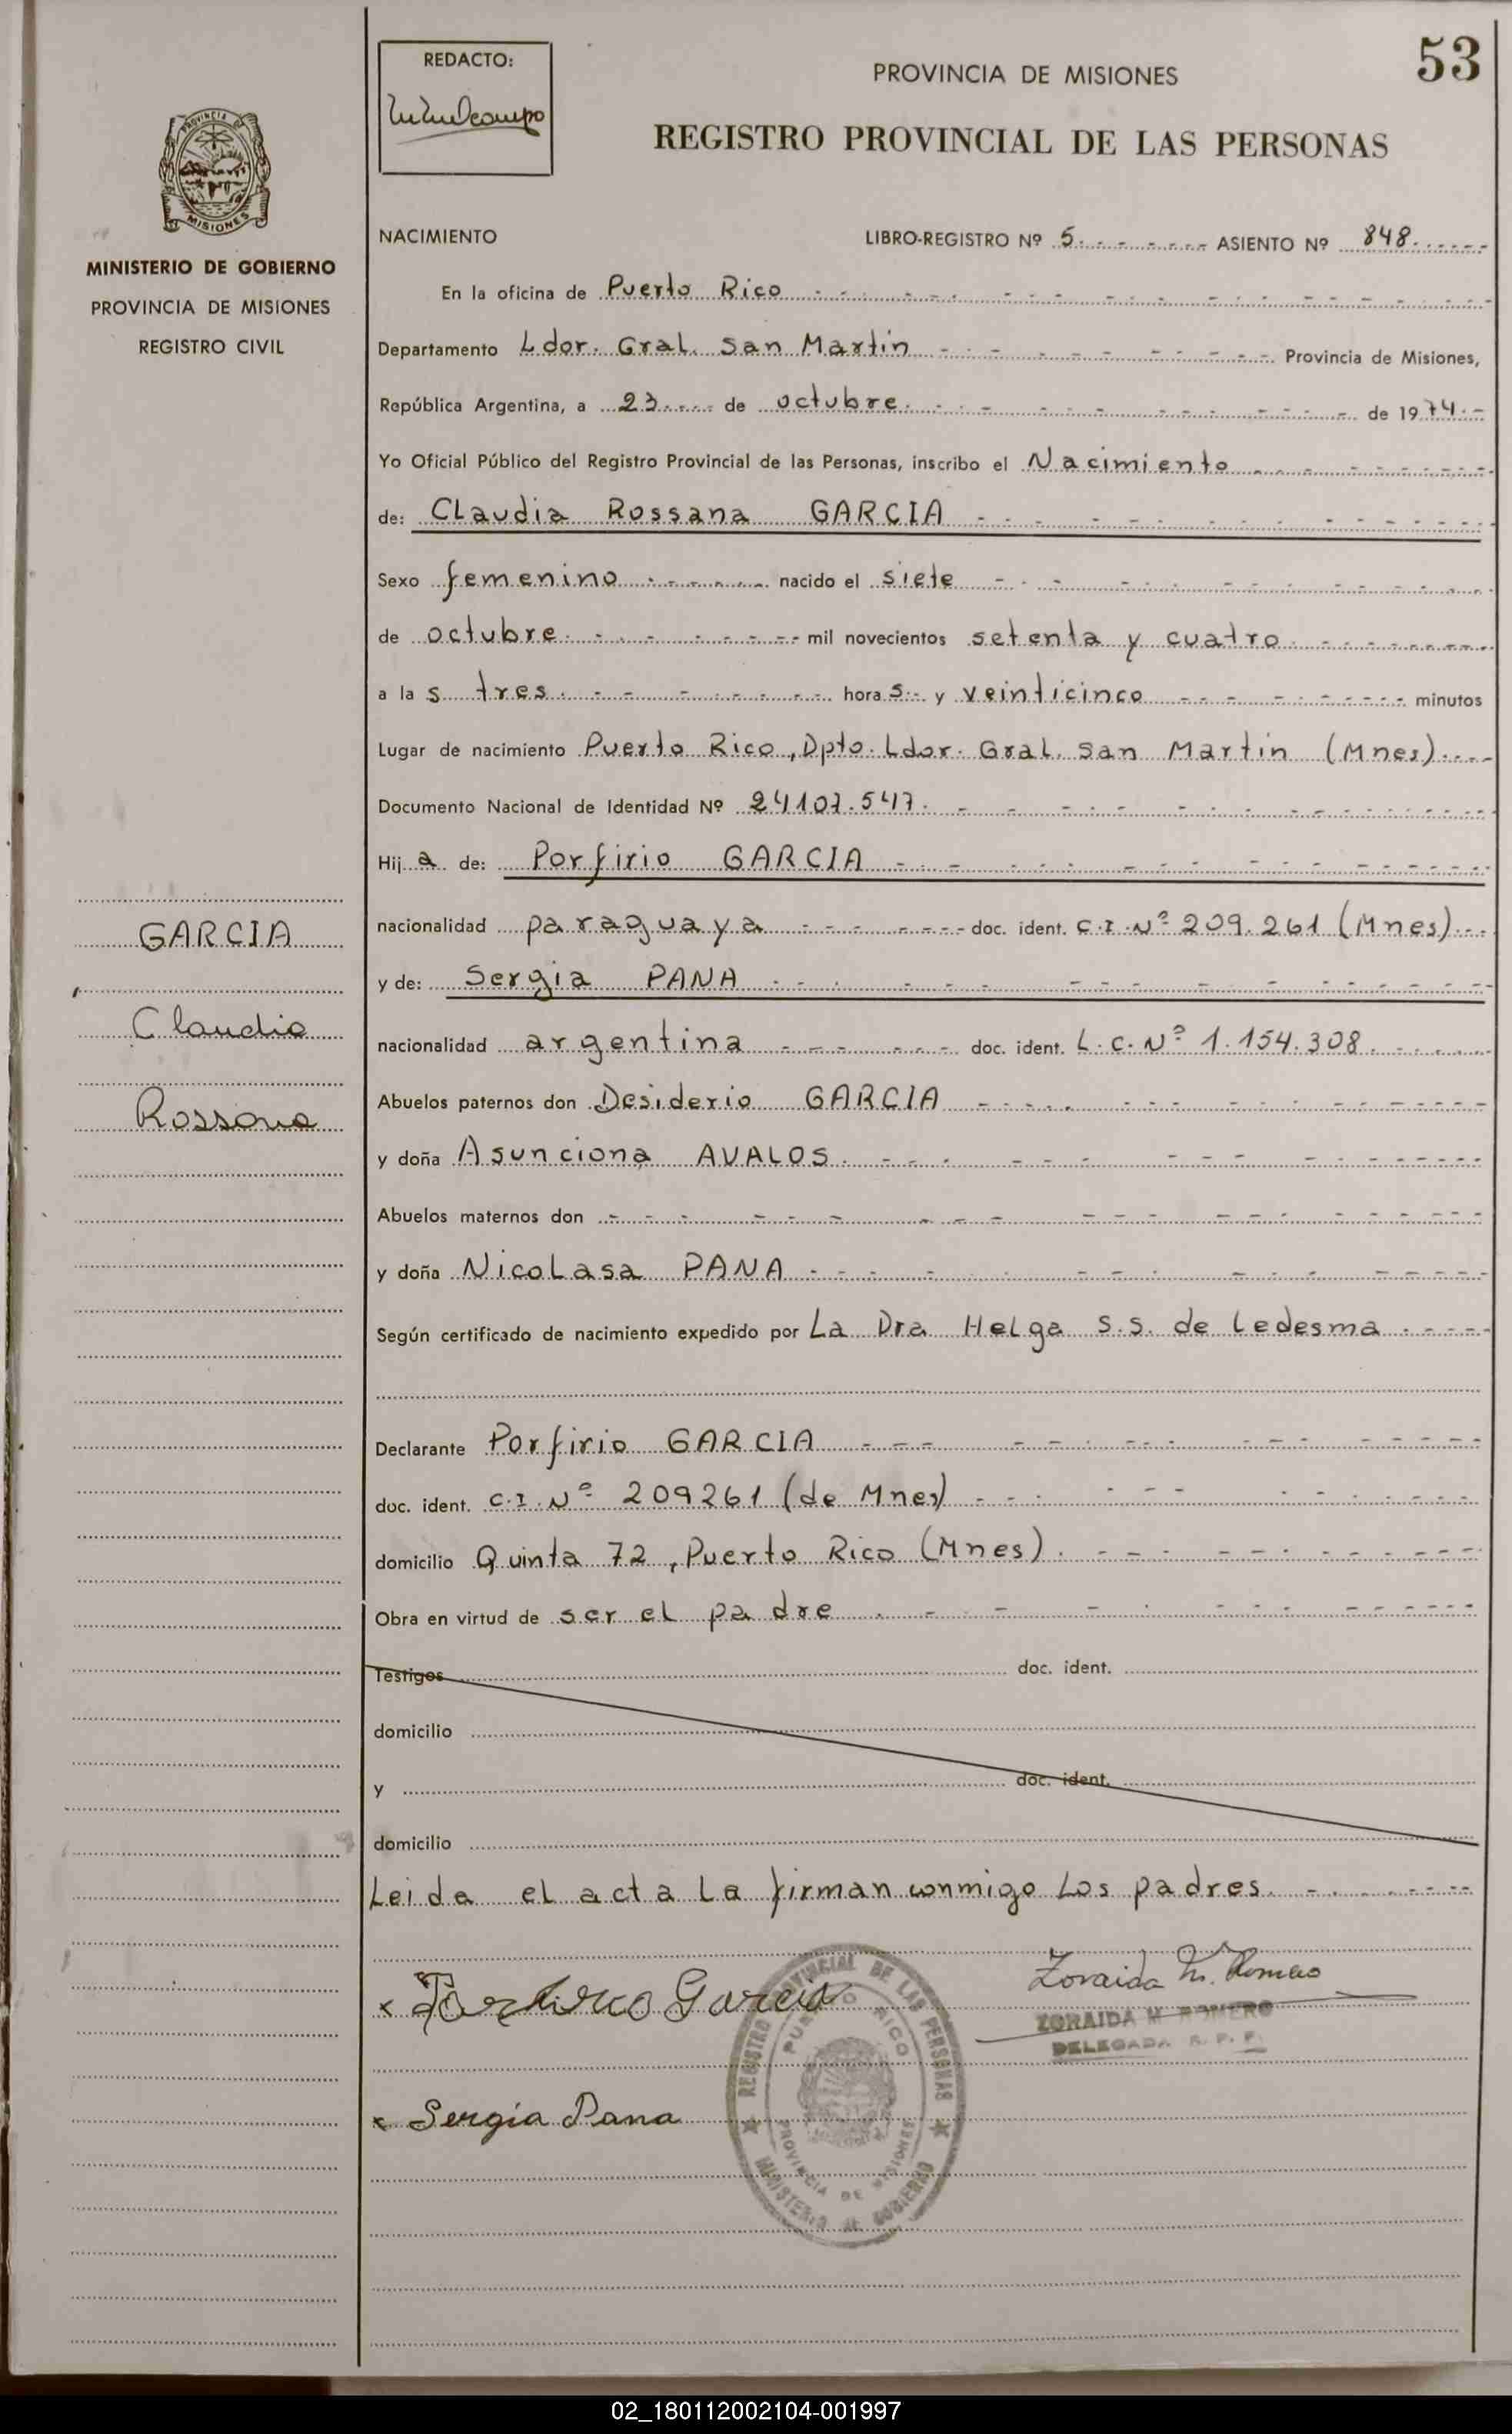 53
REDACTO:
PROVINCIA DE MISIONES
REGISTRO PROVINCIAL DE LAS PERSONAS
PROVINCIA DE
MISIONES
MINISTERIO DE GOBIERNO
PROVINCIA DE MISIONES
REGISTRO CIVIL
NACIMIENTO LIBRO-REGISTRO Nº 5 ASIENTO Nº 848
En la oficina de Puerto Rico
Departamento Ldor. Gral. San Martin Provincia de Misiones,
República Argentina, a 23 de octubre de 1974
Yo Oficial Público del Registro Provincial de las Personas, inscribo el Nacimiento
de: Claudia Rossana GARCIA
Sexo femenino nacido el siete
de octubre mil novecientos setenta y cuatro
a la s tres hora s y veinticinco minutos
Lugar de nacimiento Puerto Rico, Dpto. Ldor. Gral. San Martin (Mnes)
Documento Nacional de Identidad Nº 24107.547.
Hij a de: Porfirio GARCIA
nacionalidad paraguaya doc. ident. C.I. Nº 209.261 (Mnes)
y de: Sergia PANA
nacionalidad argentina doc. ident. L.C. Nº 1.154.308
Abuelos paternos don Desiderio GARCIA
y doña Asunciona AVALOS
Abuelos maternos don
y doña Nicolasa PANA
Según certificado de nacimiento expedido por La Dra Helga S.S. de Ledesma
Declarante Porfirio GARCIA
doc. ident. C.I. Nº 209261 (de Mnes)
domicilio Quinta 72, Puerto Rico (Mnes)
Obra en virtud de ser el padre
Testigos doc. ident.
domicilio
y doc. ident.
domicilio
Leida el acta la firman conmigo Los padres
GARCIA
Claudia
Rossana
x Porfirio Garcia
Zoraida M. Romero
ZORAIDA M ROMERO
DELEGADA R. P. P.
x Sergia Pana
REGISTRO PROVINCIAL DE LAS PERSONAS
PUERTO RICO
PROVINCIA DE MISIONES
MINISTERIO DE GOBIERNO
02_180112002104-001997